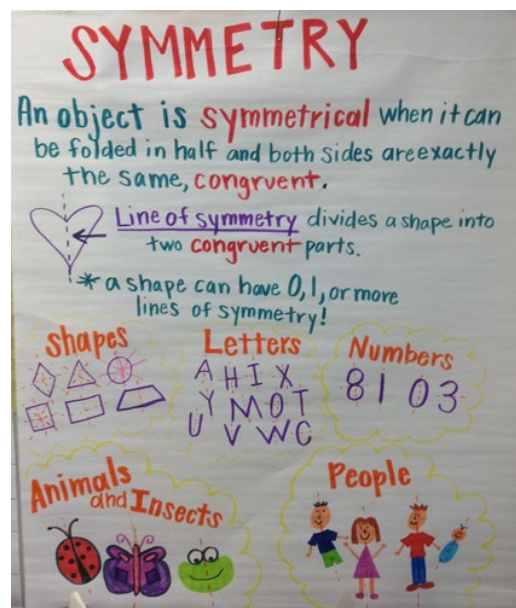 SYMMETRY
An object is symmetrical when it can
be folded in half and both sides are exactly
the same, congruent.
Line of symmetry divides a shape into
two congruent parts.
* a shape can have 0, 1, or more
lines of symmetry!
Shapes
Letters
A H I X
Y M O T
U V W C
Numbers
8 1 0 3
Animals
and Insects
People